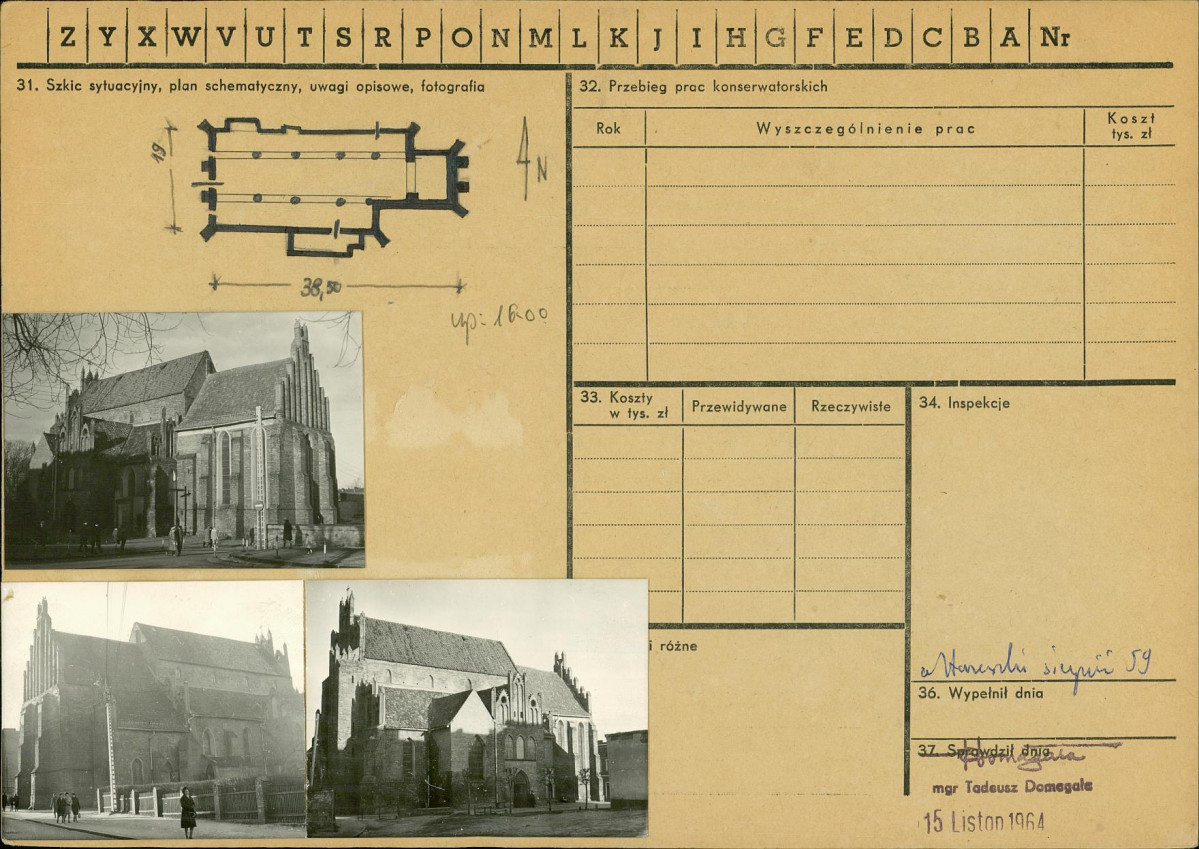 Z Y X W V U T S R P O N M L K J I H G F E D C B A Nr
31. Szkic sytuacyjny, plan schematyczny, uwagi opisowe, fotografia
19
N
38,50
32. Przebieg prac konserwatorskich
Rok
Wyszczególnienie prac
Koszt
tys. zł
33. Koszty
w tys. zł
Przewidywane
Rzeczywiste
34. Inspekcje
i różne
59
36. Wypełnił dnia
37. Sprawdził dnia
mgr Tadeusz Domagała
15 Listop 1964